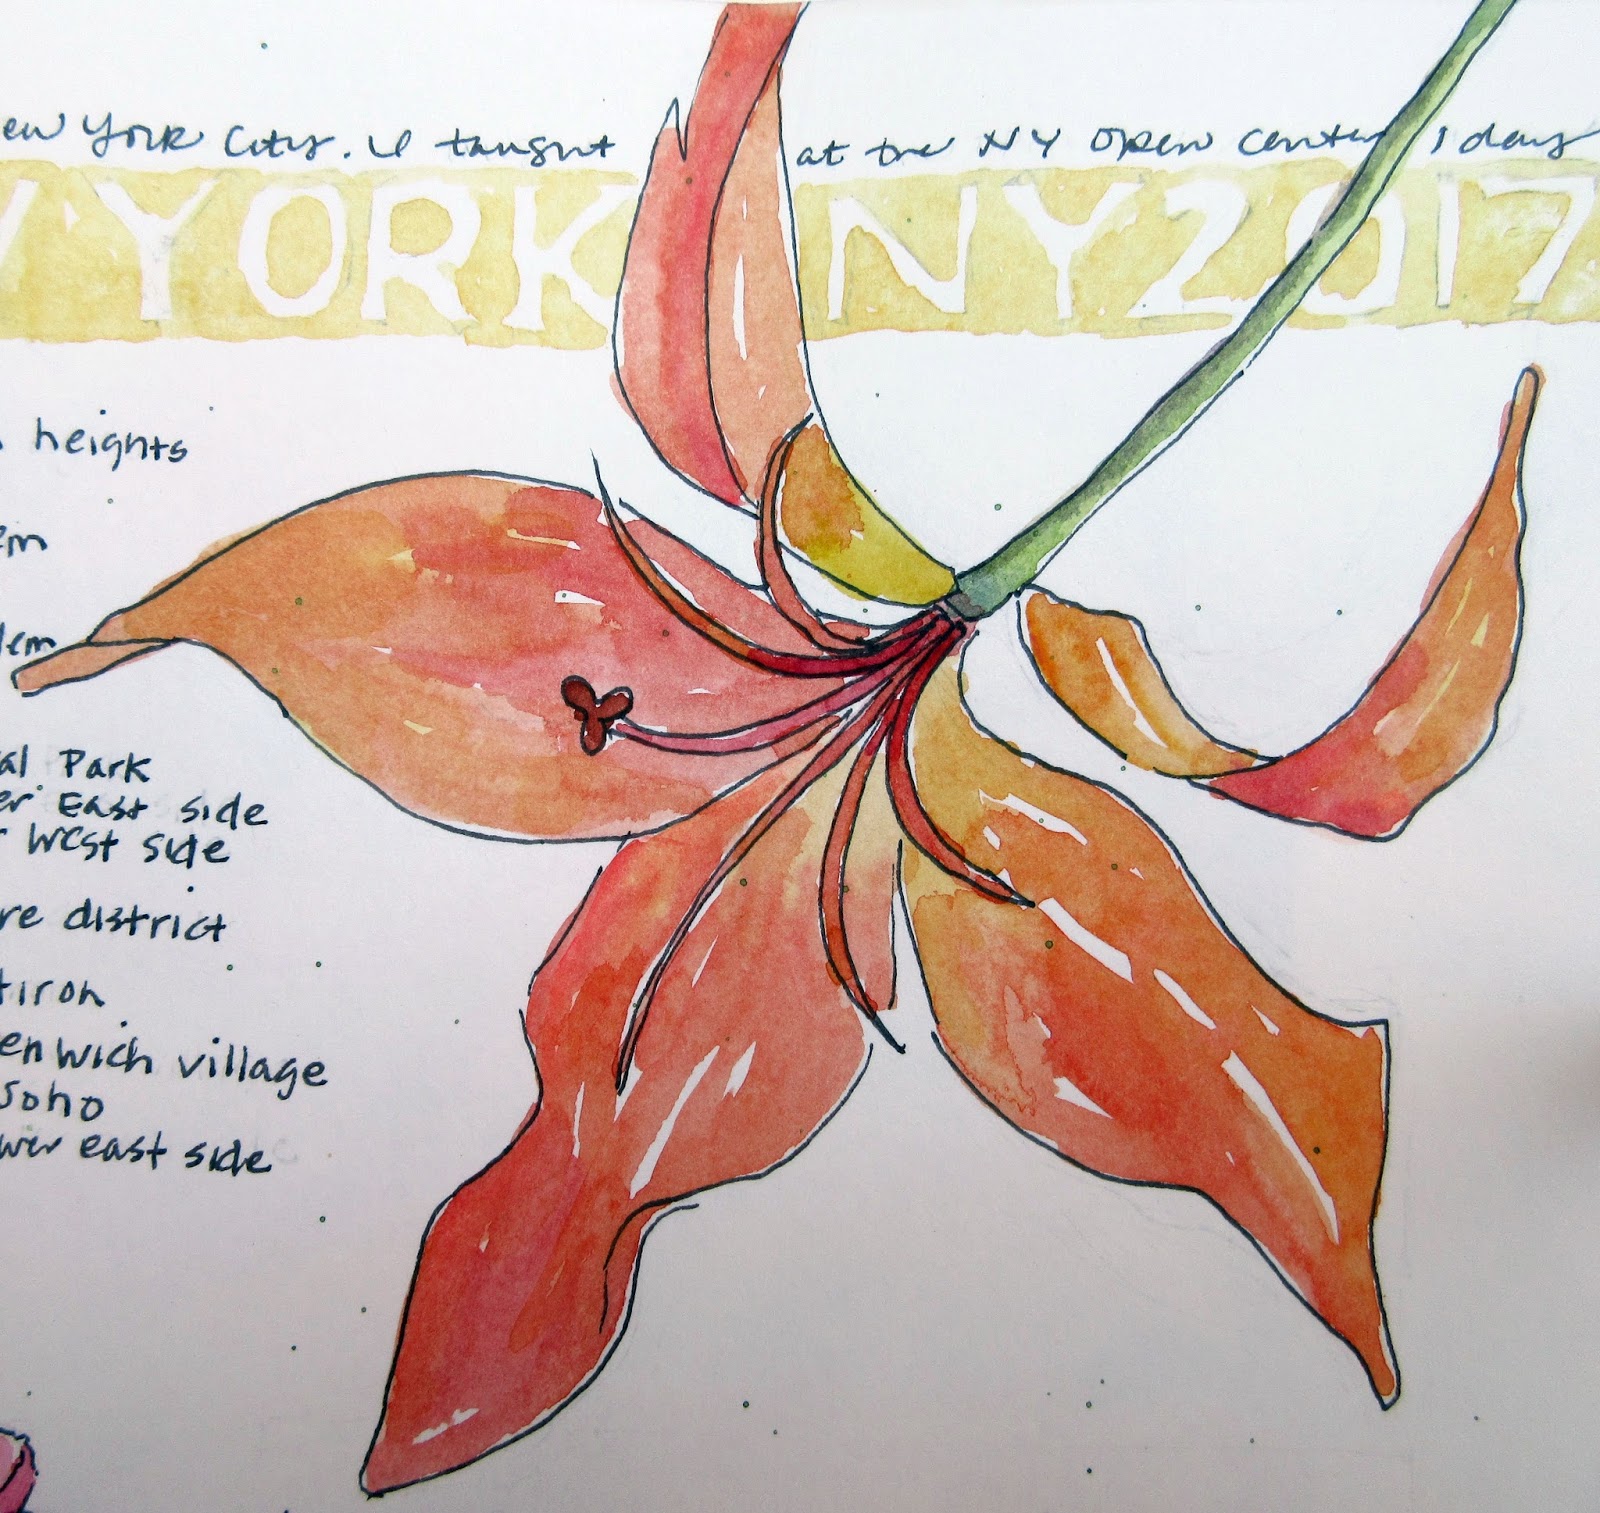 ew York City. I taught at the NY Open Center 1 day
YORK NY 2017
heights
em
lem
al Park
er East side
West side
re district
tiron
enwich village
Soho
wer east side